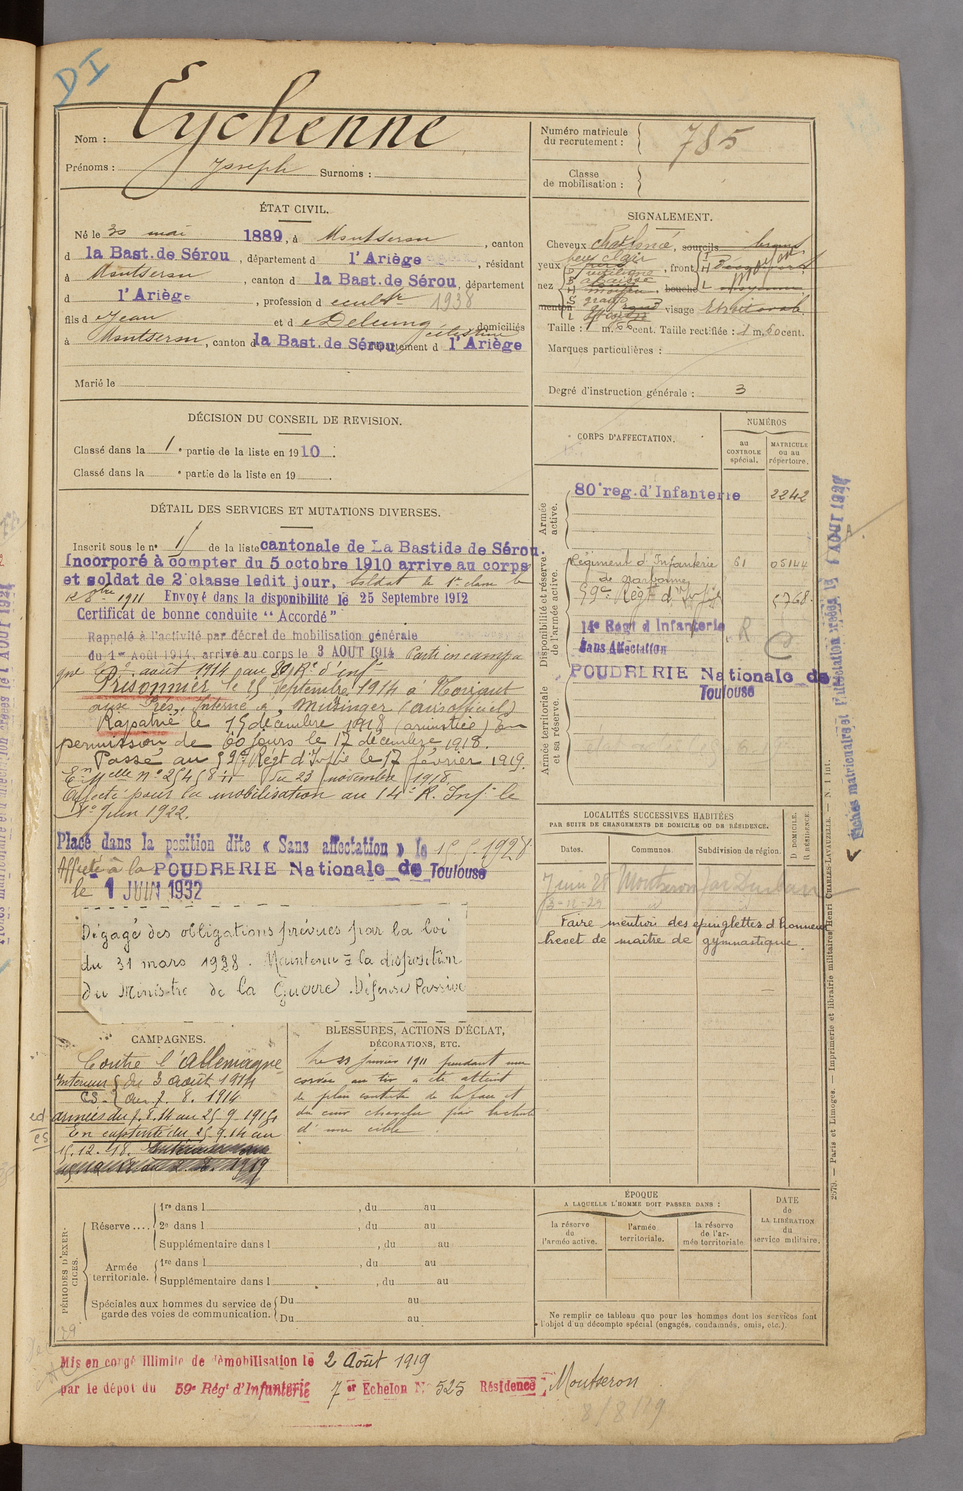 DI
Nom : Eychenne
Prénoms : Joseph Surnoms :
ÉTAT CIVIL.
Né le 30 mai 1889, à Montseron, canton
d la Bast. de Sérou, département d l'Ariège, résidant
à Montseron, canton d la Bast. de Sérou, département
d l'Ariège, profession d 1938
fils d Jean et d Céléstine domiciliés
à Montseron, canton d la Bast. de Sérou département d l'Ariège
Marié le
DÉCISION DU CONSEIL DE REVISION.
Classé dans la 1e partie de la liste en 1910.
Classé dans la e partie de la liste en 19
DÉTAIL DES SERVICES ET MUTATIONS DIVERSES.
Inscrit sous le n° 15 de la liste cantonale de La Bastide de Sérou.
Incorporé à compter du 5 octobre 1910 arrive au corps
et soldat de 2e classe ledit jour. Soldat de 1re classe le
1911 Envoyé dans la disponibilité le 25 Septembre 1912
Certificat de bonne conduite “Accordé”
Rappelé à l'activité par décret de mobilisation générale
du 1er Août 1914, arrivé au corps le 3 AOUT 1914 Parti en campa
gne le août 1914 au 80e Rt d'inf
Prisonnier le 25 Septembre 1914 à
aux Prés, Interné à (avis officiel)
Rapatrié le 15 décembre 1918 (armistice) En
permission de 60 jours le 17 décembre 1918.
Passé au 59e Régt d'Infie le 17 février 1919.
du 23 novembre 1918
Affecté pour la mobilisation au 14e R. Inf. le
1er Juin 1922.
Placé dans la position dite « Sans affectation » le 15.5.1928
Affecté à la POUDRERIE Nationale de Toulouse
le 1 JUIN 1932
Dégagé des obligations prévues par la loi
du 31 mars 1928. Maintenu à la disposition
du Ministre de la Guerre. Défense Passive
CAMPAGNES.
Contre l'Allemagne
Intérieur du 3 août 1914
CS au 7. 8. 1914
armées du 8.8.14 au 25.9.1914
En captivité du 25.9.14 au
15.12.18.
BLESSURES, ACTIONS D'ÉCLAT,
DÉCORATIONS, ETC.
Le 23 janvier 1911 pendant une
corvée au tir a été atteint
de plaie contuse de la face et
du cuir chevelu par la chute
d'une cible.
PÉRIODES D'EXERCICES.
Réserve .... 1re dans l , du au
2e dans l , du au
Supplémentaire dans l , du au
Armée territoriale. 1re dans l , du au
Supplémentaire dans l , du au
Spéciales aux hommes du service de garde des voies de communication. Du au
Du au
Numéro matricule du recrutement : 785
Classe de mobilisation :
SIGNALEMENT.
Cheveux chât foncé, sourcils bruns
yeux , front
nez , bouche moyenne
menton rond visage
Taille : 1 m. cent. Taille rectifiée : 1 m. 60 cent.
Marques particulières :
Degré d'instruction générale : 3
CORPS D'AFFECTATION.
NUMÉROS
au CONTROLE spécial.
MATRICULE ou au répertoire.
Armée active.
80e reg. d'Infanterie 2242
Disponibilité et réserve de l'armée active.
Régiment d'Infanterie 61 05144
de Narbonne
59e Régt d'Infie 5768
14e Régt d'Infanterie R
Sans Affectation
POUDRERIE Nationale de
Toulouse
Armée territoriale et sa réserve.
LOCALITÉS SUCCESSIVES HABITÉES
PAR SUITE DE CHANGEMENTS DE DOMICILE OU DE RÉSIDENCE.
Dates. Communes. Subdivision de région. D DOMICILE. R RÉSIDENCE.
7 juin 28 Montseron par Durban
Faire mention des épinglettes d'honneur
brevet de maître de gymnastique.
ÉPOQUE
A LAQUELLE L'HOMME DOIT PASSER DANS :
la réserve de l'armée active.
l'armée territoriale.
la réserve de l'armée territoriale
DATE de LA LIBÉRATION du service militaire.
Ne remplir ce tableau que pour les hommes dont les services font
l'objet d'un décompte spécial (engagés, condamnés, omis, etc.).
2679. — Paris et Limoges. — Imprimerie et librairie militaires Henri CHARLES-LAVAUZELLE. — N. 1 int.
Mis en congé illimité de démobilisation le 2 Août 1919
par le dépot du 59e Régt d'Infanterie 7er Echelon N° 525 Résidence : Montseron
8/8/19